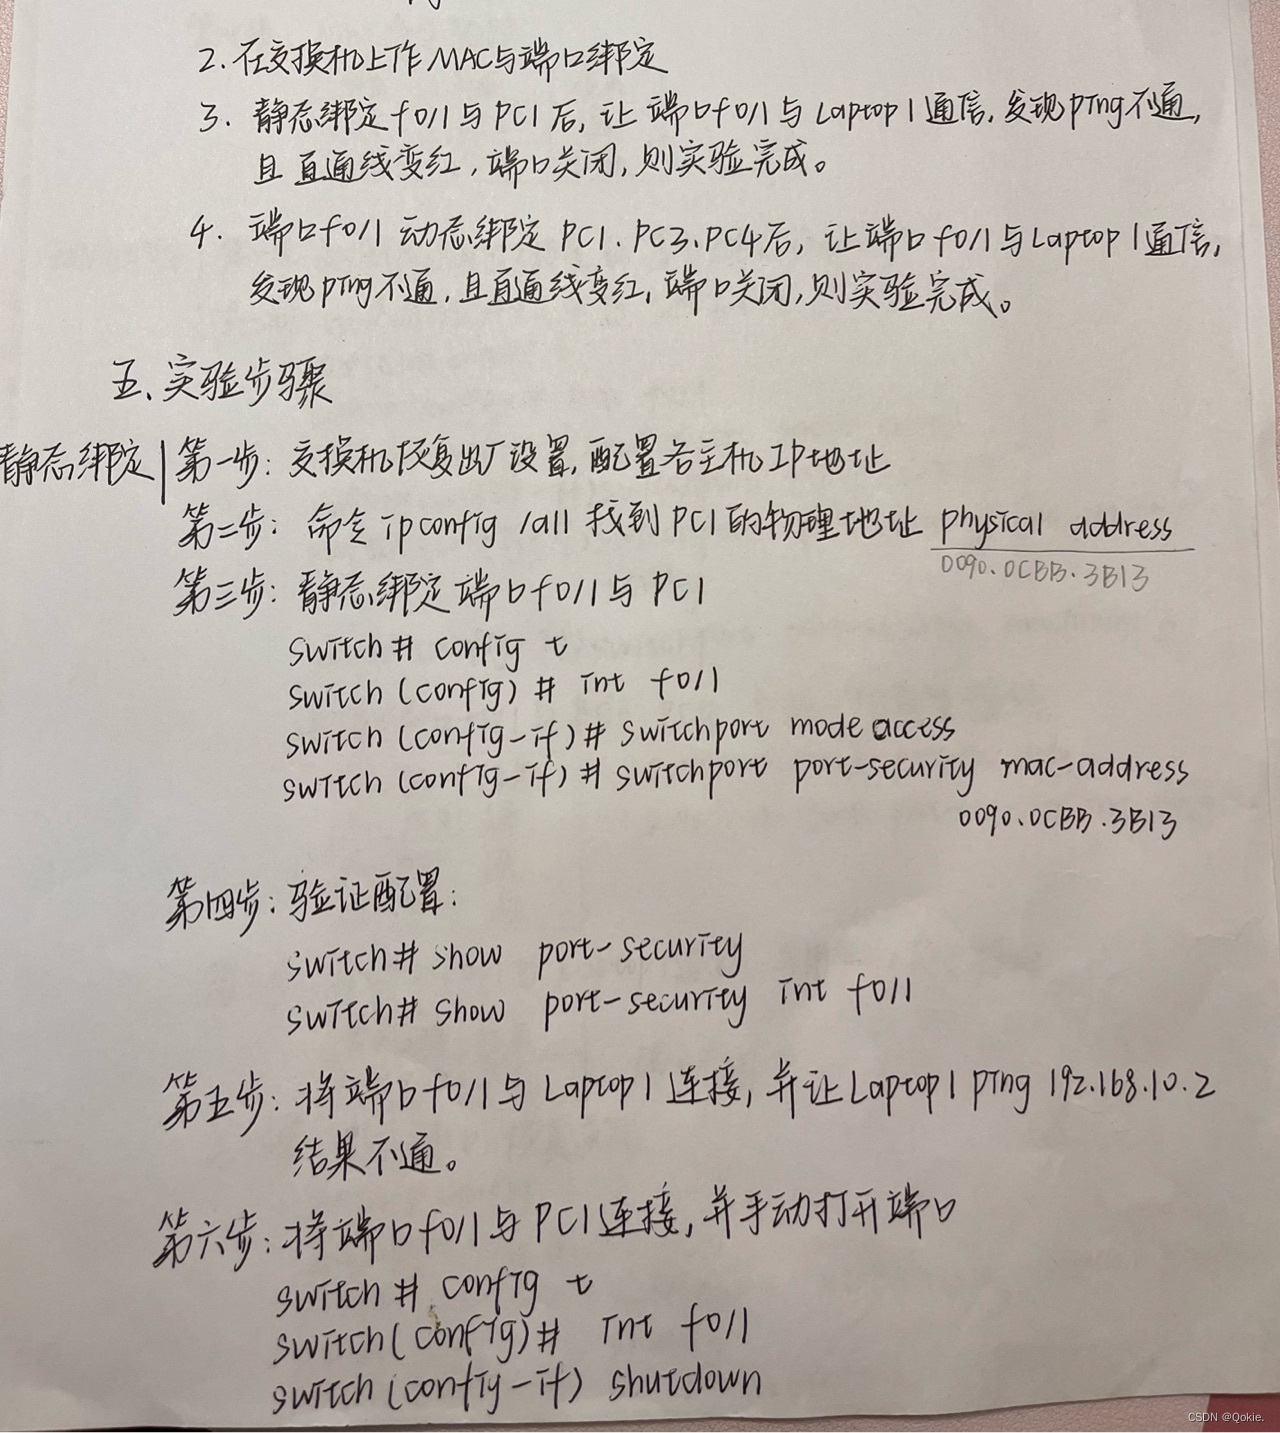 2. 在交换机上作MAC与端口绑定
3. 静态绑定f0/1与PC1后, 让端口f0/1与Laptop1通信, 发现ping不通,
且直通线变红, 端口关闭, 则实验完成。
4. 端口f0/1动态绑定PC1、PC3、PC4后, 让端口f0/1与Laptop1通信,
发现ping不通, 且直通线变红, 端口关闭, 则实验完成。
五、实验步骤
静态绑定|第一步: 交换机恢复出厂设置, 配置各主机IP地址
第二步: 命令ipconfig /all 找到PC1的物理地址 physical address
0090.0CBB.3B13
第三步: 静态绑定端口f0/1与PC1
switch# config t
switch (config) # int f0/1
switch (config-if)# switchport mode access
switch (config-if)# switchport port-security mac-address
0090.0CBB.3B13
第四步: 验证配置:
switch# show port-security
switch# show port-security int f0/1
第五步: 将端口f0/1与Laptop1连接, 并让Laptop1 ping 192.168.10.2
结果不通。
第六步: 将端口f0/1与PC1连接, 并手动打开端口
switch # config t
switch(config)# int f0/1
switch (config-if) shutdown
CSDN @Qokie.